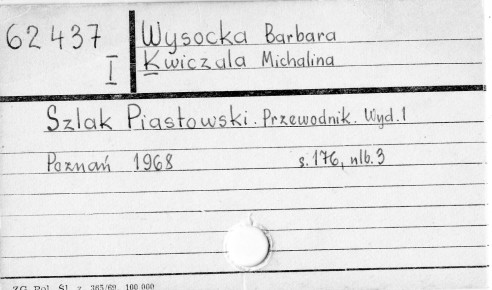 62437 Wysocka Barbara
I Kwiczala Michalina
Szlak Piastowski. Przewodnik. Wyd.1
Poznań 1968 s.176, nlb.3
ZG Pol. Śl. z. 365/69 100 000